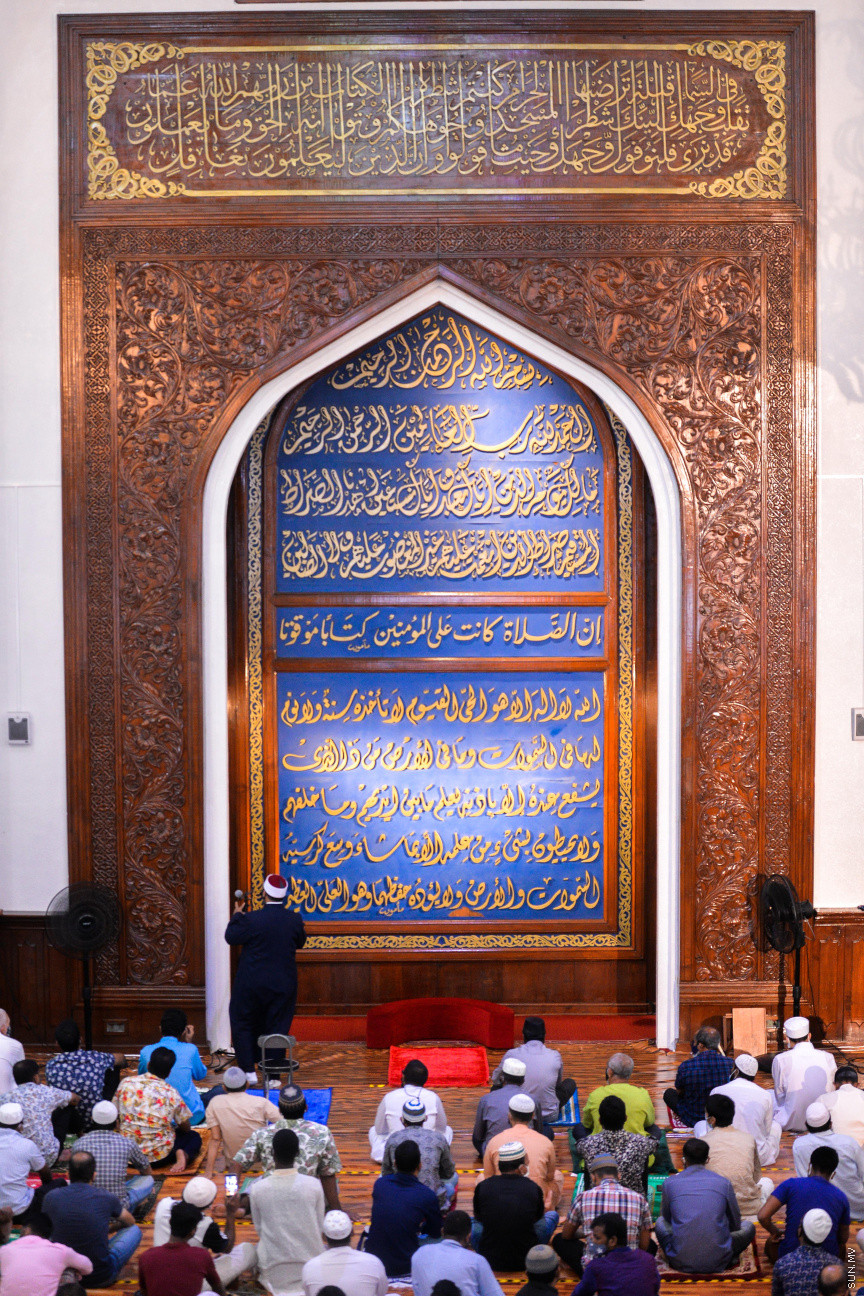 قد نرى تقلب وجهك في السماء فلنولينك قبلة ترضاها فول وجهك شطر المسجد الحرام وحيث ما كنتم فولوا وجوهكم شطره وإن الذين أوتوا الكتاب ليعلمون أنه الحق من ربهم وما الله بغافل عما يعملون
بسم الله الرحمن الرحيم
الحمد لله رب العالمين الرحمن الرحيم
مالك يوم الدين إياك نعبد وإياك نستعين اهدنا الصراط
المستقيم صراط الذين أنعمت عليهم غير المغضوب عليهم ولا الضالين
إن الصلاة كانت على المؤمنين كتابا موقوتا
الله لا إله إلا هو الحي القيوم لا تأخذه سنة ولا نوم
له ما في السموات وما في الأرض من ذا الذي
يشفع عنده إلا بإذنه يعلم ما بين أيديهم وما خلفهم
ولا يحيطون بشيء من علمه إلا بما شاء وسع كرسيه
السموات والأرض ولا يؤده حفظهما وهو العلي العظيم
SUN.MV